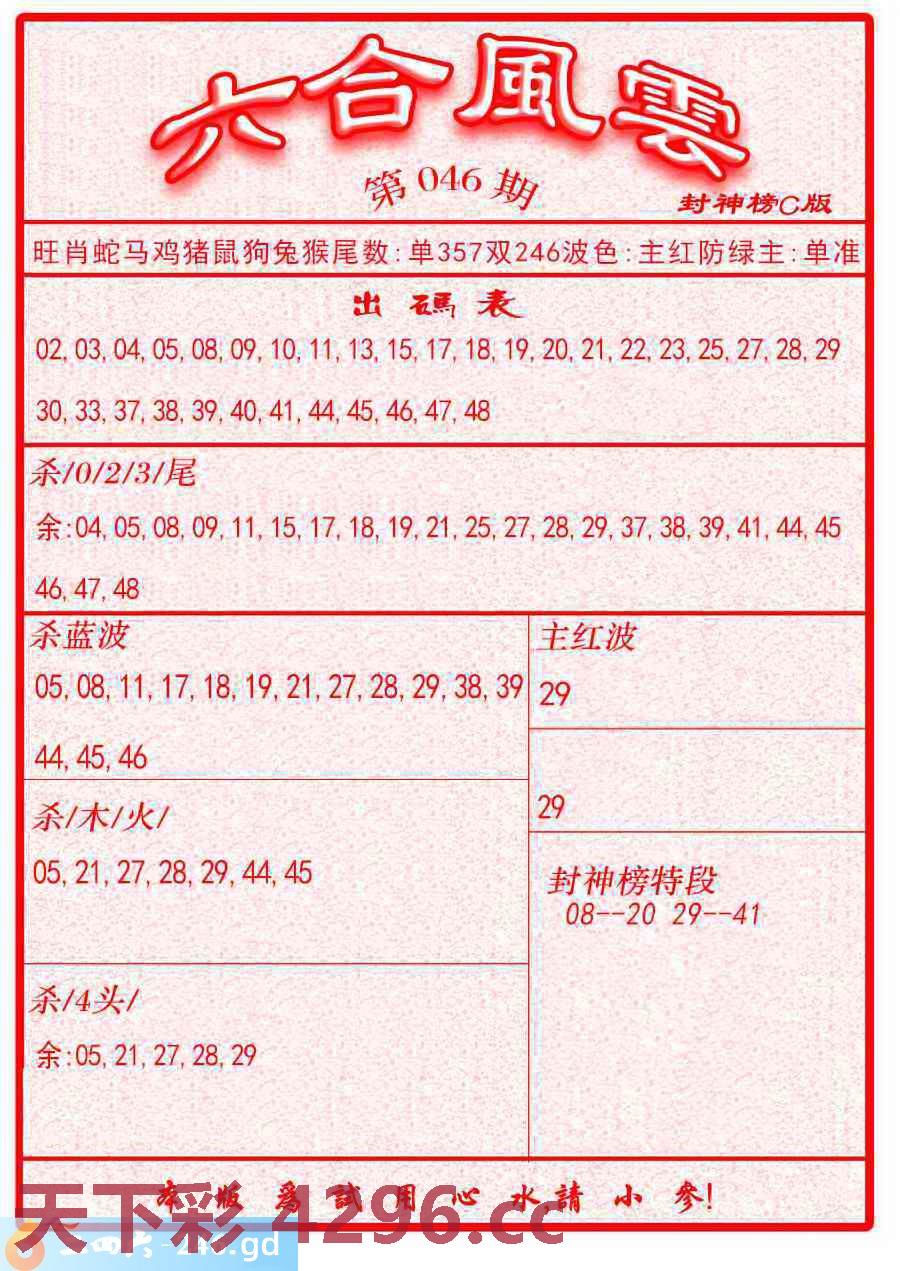 六合風雲
第 046 期
封神榜C版
旺肖蛇马鸡猪鼠狗兔猴尾数:单357双246波色:主红防绿主:单准
出碼表
02,03,04,05,08,09,10,11,13,15,17,18,19,20,21,22,23,25,27,28,29
30,33,37,38,39,40,41,44,45,46,47,48
杀/0/2/3/尾
余:04,05,08,09,11,15,17,18,19,21,25,27,28,29,37,38,39,41,44,45
46,47,48
杀蓝波
05,08,11,17,18,19,21,27,28,29,38,39
44,45,46
主红波
29
29
杀/木/火/
05,21,27,28,29,44,45
封神榜特段
08--20 29--41
杀/4头/
余:05,21,27,28,29
本版爲試用心水,請小參!
天下彩 4296.cc
二四六-246.gd